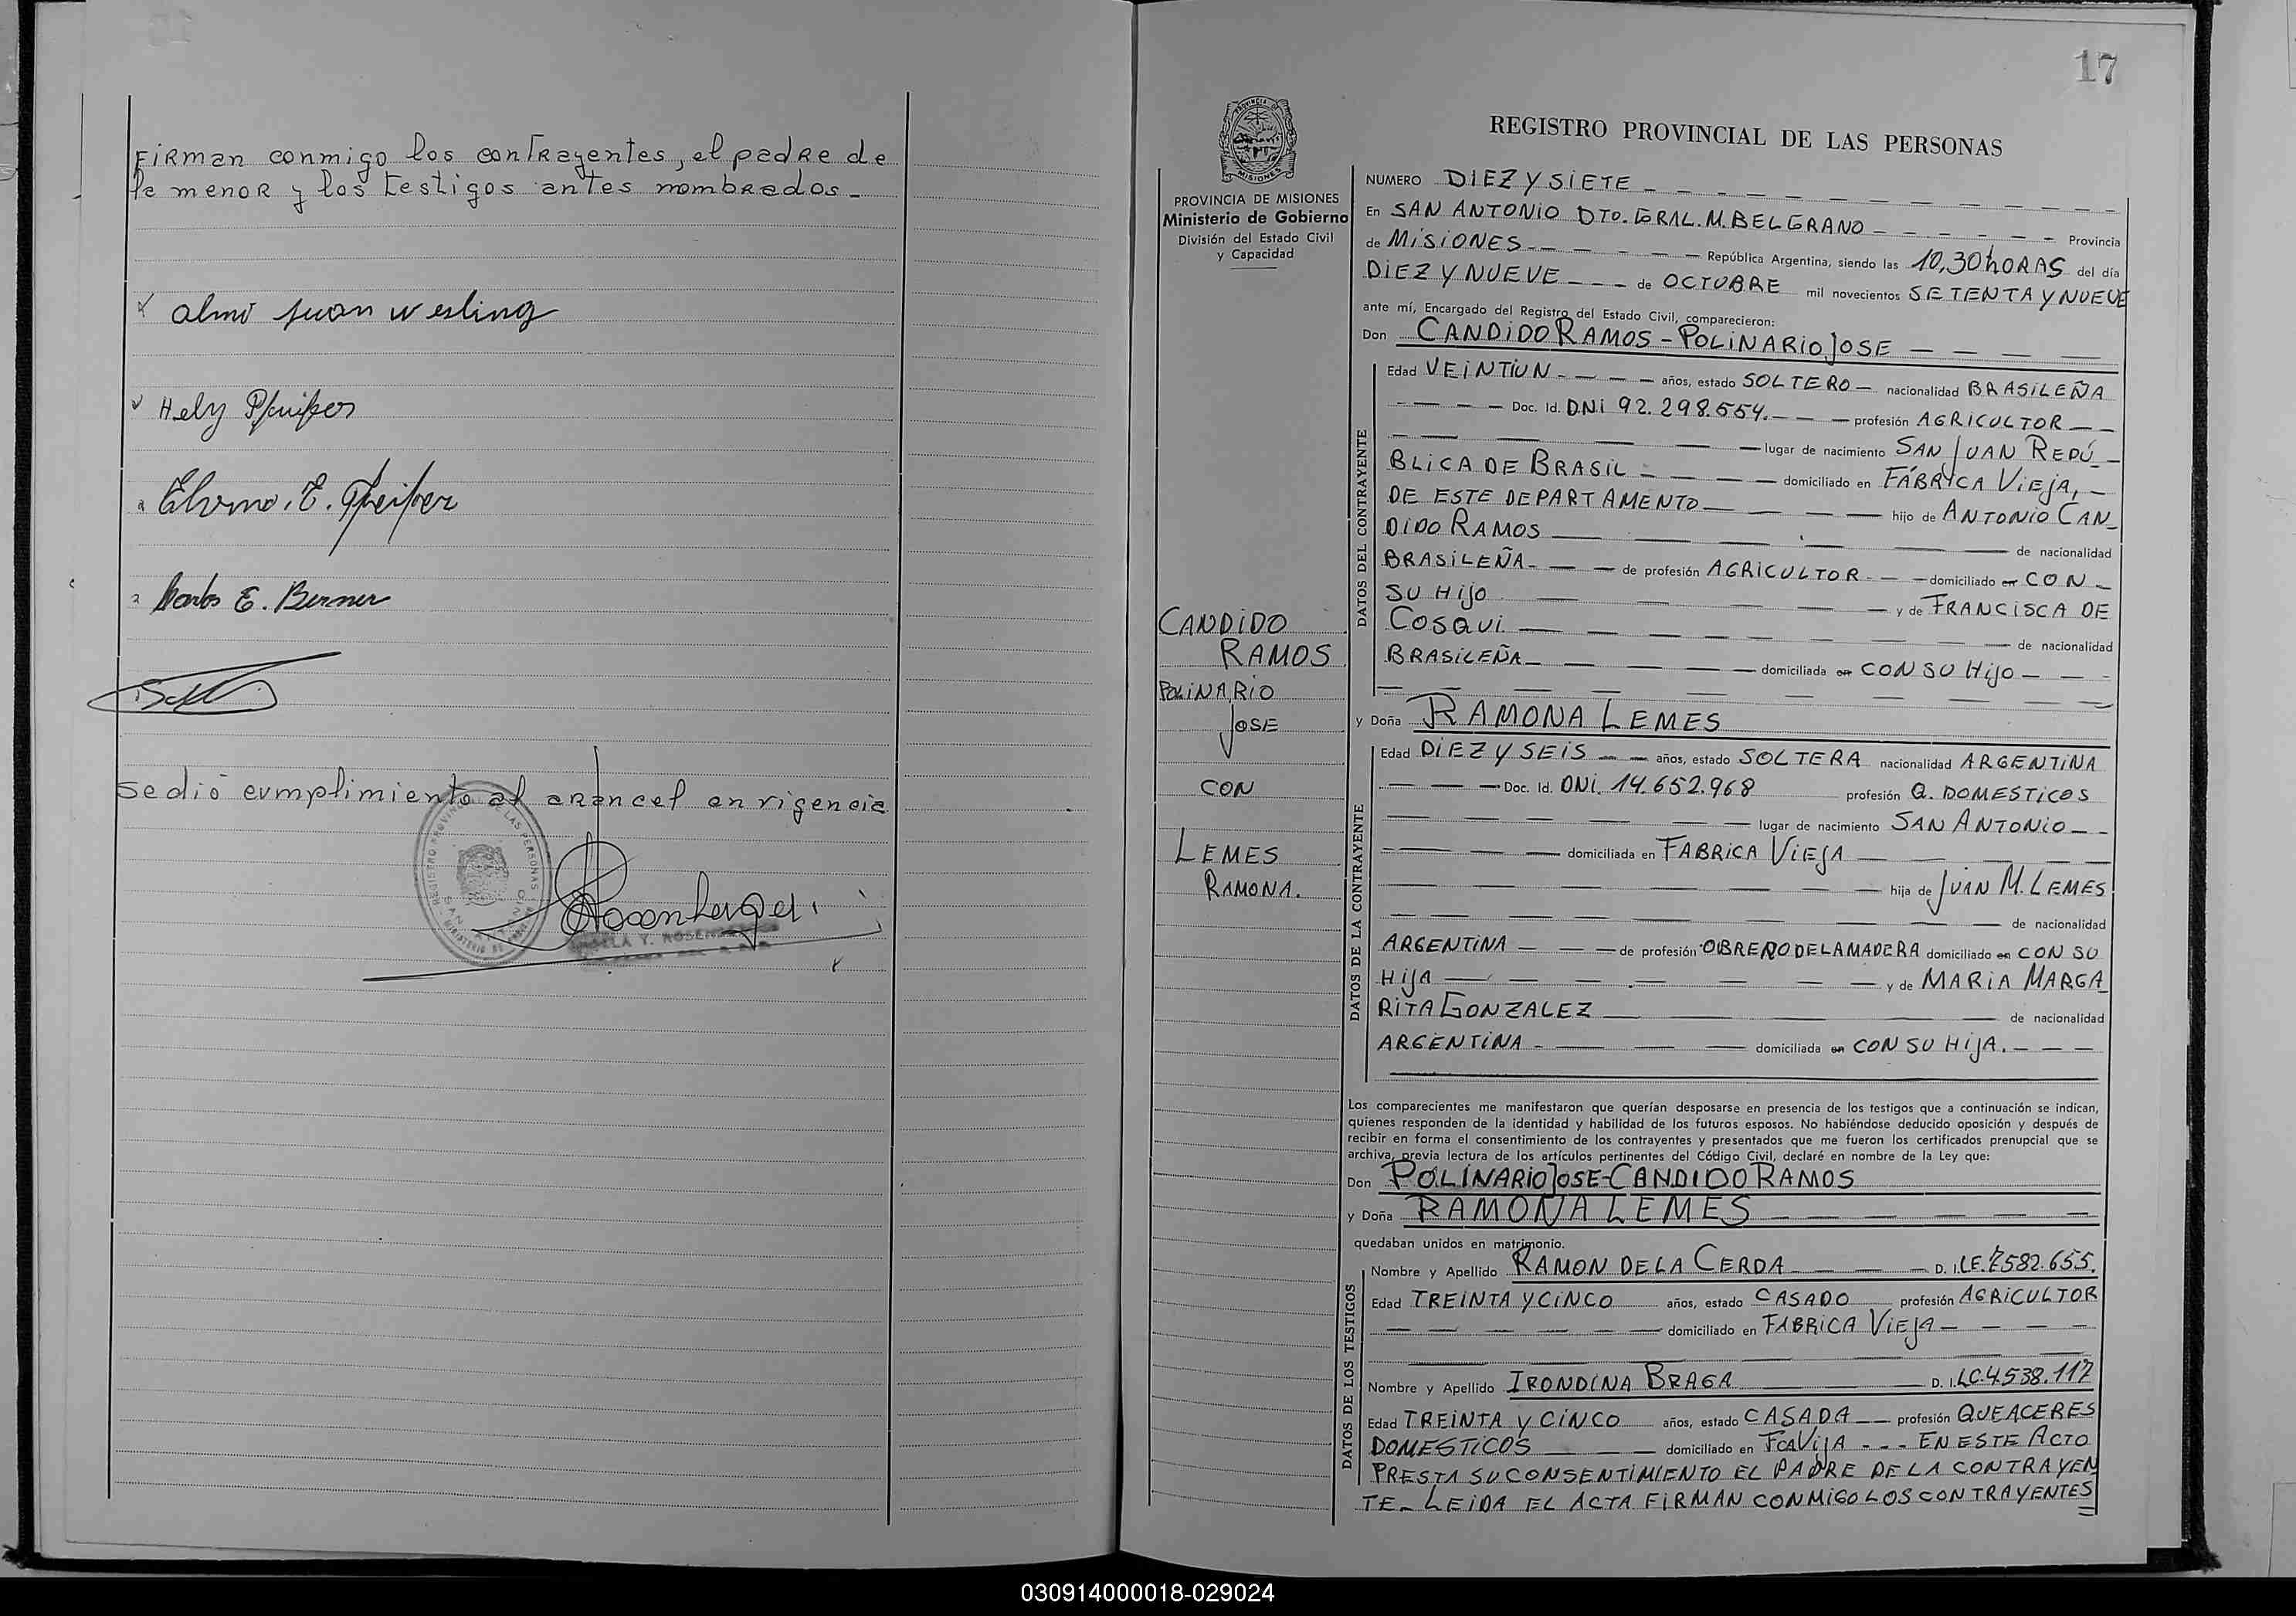 Firman conmigo los contrayentes, el padre de
la menor y los testigos antes nombrados.-
almi juan wesling
Hely Pfeifer
E. Pfeifer
Carlos E. Berner
se dió cumplimiento al arancel en vigencia
REGISTRO PROVINCIAL DE LAS PERSONAS
17
PROVINCIA DE MISIONES
Ministerio de Gobierno
División del Estado Civil
y Capacidad
CANDIDO
RAMOS
POLINARIO
JOSE
CON
LEMES
RAMONA.
REGISTRO PROVINCIAL DE LAS PERSONAS
NUMERO DIEZ Y SIETE
En SAN ANTONIO DTO. GRAL. M. BELGRANO Provincia
de MISIONES República Argentina, siendo las 10,30 hORAS del día
DIEZ Y NUEVE de OCTUBRE mil novecientos SETENTA Y NUEVE
ante mí, Encargado del Registro del Estado Civil, comparecieron:
Don CANDIDO RAMOS - POLINARIO JOSE
DATOS DEL CONTRAYENTE
Edad VEINTIUN años, estado SOLTERO nacionalidad BRASILEÑA
Doc. Id. D.N.i 92.298.554. profesión AGRICULTOR
lugar de nacimiento SAN JUAN REPÚ-
BLICA DE BRASIL domiciliado en FÁBRICA VIEJA,
DE ESTE DEPARTAMENTO hijo de ANTONIO CAN-
DIDO RAMOS de nacionalidad
BRASILEÑA de profesión AGRICULTOR domiciliado en CON
SU HIJO y de FRANCISCA DE
COSQUI de nacionalidad
BRASILEÑA domiciliada en CON SU HIJO
y Doña RAMONA LEMES
DATOS DE LA CONTRAYENTE
Edad DIEZ Y SEIS años, estado SOLTERA nacionalidad ARGENTINA
Doc. Id. DNI. 14.652.968 profesión Q. DOMESTICOS
lugar de nacimiento SAN ANTONIO
domiciliada en FABRICA VIEJA
hija de JUAN M. LEMES
de nacionalidad
ARGENTINA de profesión OBRERO DE LA MADERA domiciliado en CON SU
HIJA y de MARIA MARGA
RITA GONZALEZ de nacionalidad
ARGENTINA domiciliada en CON SU HIJA.
Los comparecientes me manifestaron que querían desposarse en presencia de los testigos que a continuación se indican,
quienes responden de la identidad y habilidad de los futuros esposos. No habiéndose deducido oposición y después de
recibir en forma el consentimiento de los contrayentes y presentados que me fueron los certificados prenupcial que se
archiva, previa lectura de los artículos pertinentes del Código Civil, declaré en nombre de la Ley que:
Don POLINARIO JOSE-CANDIDO RAMOS
y Doña RAMONA LEMES
quedaban unidos en matrimonio.
DATOS DE LOS TESTIGOS
Nombre y Apellido RAMON DE LA CERDA D. I. LE. 7582.655.
Edad TREINTA Y CINCO años, estado CASADO profesión AGRICULTOR
domiciliado en FABRICA VIEJA
Nombre y Apellido IRONDINA BRAGA D. I. LC. 4.538.117
Edad TREINTA Y CINCO años, estado CASADA profesión QUEACERES
DOMESTICOS domiciliado en FCA VIJA EN ESTE ACTO
PRESTA SU CONSENTIMIENTO EL PADRE DE LA CONTRAYEN
TE- LEIDA EL ACTA FIRMAN CONMIGO LOS CONTRAYENTES
030914000018-029024